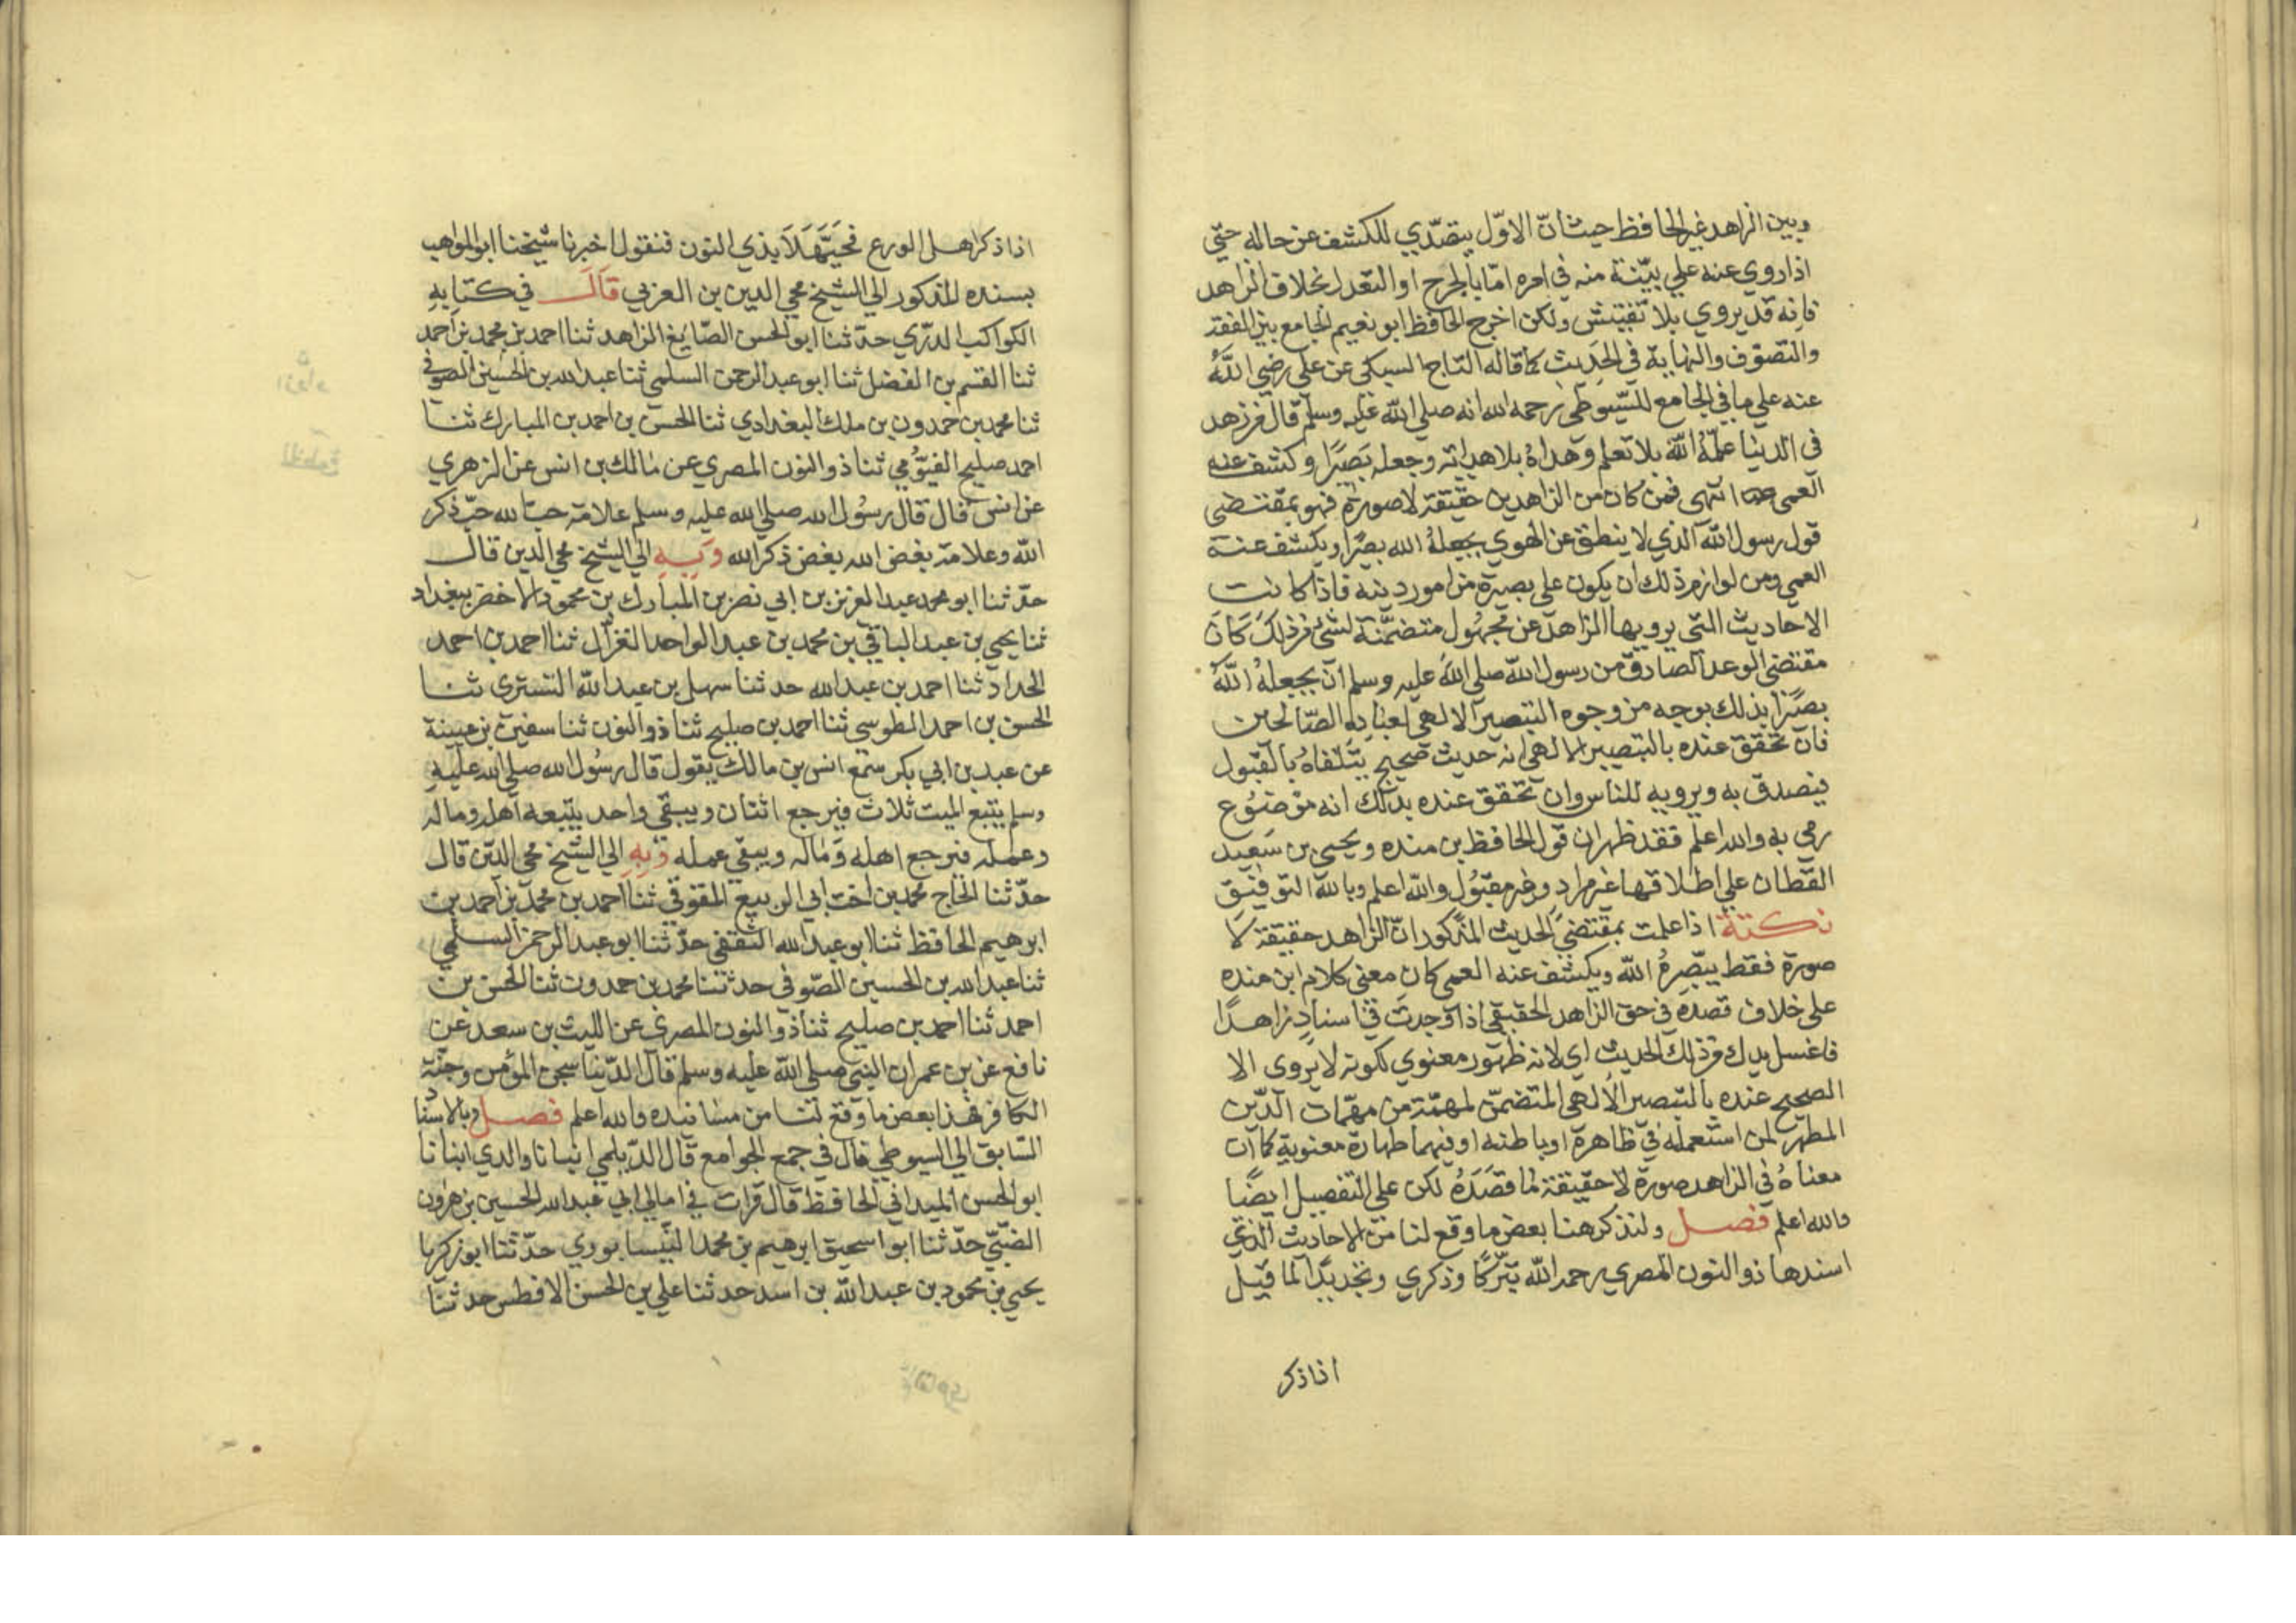 وبين الزاهد غير الحافظ حيث انّ الاوّل يتصدّي للكشف عن حاله حتّي
اذا روي عنه علي بيّنة منه في امره امّا بالجرح او التعديل بخلاف الزاهد
فانه قد يروي بلا تفتيش ولكن اخرج الحافظ ابو نعيم الجامع بين الفقه
والتصوّف والنهاية في الحديث كما قاله التاج السبكي عن علي رضي اللّه
عنه علي ما في الجامع للسّيوطي رحمه الله انه صلي اللّه عليه وسلم قال من زهد
في الدنيا علّمه اللّه بلا تعلم وهداه بلا هداية وجعله بصيرًا وكشف عنه
العمي انتهى فمن كان من الزاهدين حقيقة لا صورة فهو بمقتضي
قول رسول اللّه الذي لا ينطق عن الهوي يجعله الله بصيرًا ويكشف عنه
العمي ومن لوازم ذلك ان يكون علي بصيرة من امور دينه فاذا كانت
الاحاديث التي يرويها الزاهد عن مجهول متضمّنة لشئ من ذلك كان
مقتضي الوعد الصادق من رسول اللّه صلي اللّه عليه وسلم ان يجعله اللّه
بصيرًا بذلك بوجه من وجوه التبصير الالهي لعباده الصّالحين
فان تحقق عنده بالتبصير الالهي انه حديث صحيح يتلقاه بالقبول
فيصدق به ويرويه للناس وان تحقق عنده بذلك انه موضوع
رمي به والله اعلم فقد ظهر ان قول الحافظ بن منده ويحيي بن سعيد
القطان علي اطلاقها غير مراد وغير مقبول واللّه اعلم وبالله التوفيق
نكتة اذا علمت بمقتضي الحديث المذكور انّ الزاهد حقيقة لا
صورة فقط يبصّره اللّه ويكشف عنه العمي كان معني كلام ابن منده
علي خلاف قصده في حق الزاهد الحقيقي اذا وجدت في اسناد زاهدًا
فاغسل يدك من ذلك الحديث اي لانه ظهور معنوي لكونه لا يروي الا
الصحيح عنده بالتبصير الالهي المتضمّن لمهمّة من مهمّات الدّين
المطهر لمن استعمله في ظاهره او باطنه او فيهما طهارة معنوية كما ان
معناه في الزاهد صورة لا حقيقة لما قصده لكن علي التفصيل ايضًا
والله اعلم فصل ولنذكر هنا بعض ما وقع لنا من الاحاديث الذي
اسندها ذو النون المصري رحمه اللّه تبرّكًا وذكري وتجديدًا لما قيل
اذا ذكر
اذا ذكر اهل الورع فحيّهلا بذي النون فنقول اخبرنا شيخنا ابو المواهب
بسنده المذكور الي الشيخ محي الدين بن العربي قال في كتابه
الكواكب الدرّي حدّثنا ابو الحسن الصّايغ الزاهد ثنا احمد بن محمد بن احمد
ثنا القسم بن الفضل ثنا ابو عبد الرحمن السلمي ثنا عبد الله بن الحسين الصوفي
ثنا محمد بن حمدون بن ملك البغدادي ثنا الحسن بن احمد بن المبارك ثنا
احمد صليح الفيّومي ثنا ذو النون المصري عن مالك بن انس عن الزهري
عن انس قال قال رسول الله صلي الله عليه وسلم علامة حبّ الله حبّ ذكر
اللّه وعلامة بغض الله بغض ذكر الله وبه الي الشيخ محي الدين قال
حدّثنا ابو محمد عبد العزيز بن ابي نصر بن المبارك بن محمود الاخضر ببغداد
ثنا يحيي بن عبد الباقي بن محمد بن عبد الواحد الغزّال ثنا احمد بن احمد
الحداد ثنا احمد بن عبد الله حدثنا سهل بن عبد اللّه التستري ثنا
الحسن بن احمد الطوسي ثنا احمد بن صليح ثنا ذو النون ثنا سفين بن عيينة
عن عبد بن ابي بكر سمع انس بن مالك يقول قال رسول الله صلي الله عليه
وسلم يتبع الميت ثلاث فيرجع اثنان ويبقي واحد يتبعه اهله وماله
وعمله فيرجع اهله وماله ويبقي عمله وبه الي الشيخ محي الدين قال
حدّثنا الحاج محمد بن اخت ابي الربيع المقوقي ثنا احمد بن محمد بن احمد بن
ابرهيم الحافظ ثنا ابو عبد الله الثقفي حدّثنا ابو عبد الرحمن السلمي
ثنا عبد الله بن الحسين الصّوفي حدثنا محمد بن حمدون ثنا الحسن بن
احمد ثنا احمد بن صليح ثنا ذو النون المصري عن الليث بن سعد عن
نافع عن بن عمر ان النبي صلي اللّه عليه وسلم قال الدّنيا سجن المؤمن وجنّة
الكافر فهذا بعض ما وقع لنا من مسانيده والله اعلم فصل وبالاسناد
السّابق الي السيوطي قال في جمع الجوامع قال الدّيلمي انبانا والدي انبانا
ابو الحسن الميداني الحافظ قال قرات في امالي ابي عبد الله الحسين بن هرون
الضبّي حدّثنا ابو اسحيق ابرهيم بن محمد النّيسابوري حدّثنا ابو زكريا
يحيي بن محمود بن عبد اللّه بن اسد حدثنا علي بن الحسن الافطس حدثنا